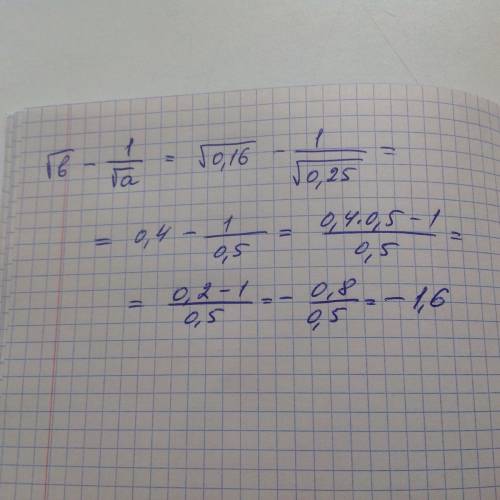 √b - 1/√a = √0,16 - 1/√0,25 =
= 0,4 - 1/0,5 = (0,4·0,5 - 1)/0,5 =
= (0,2 - 1)/0,5 = - 0,8/0,5 = - 1,6